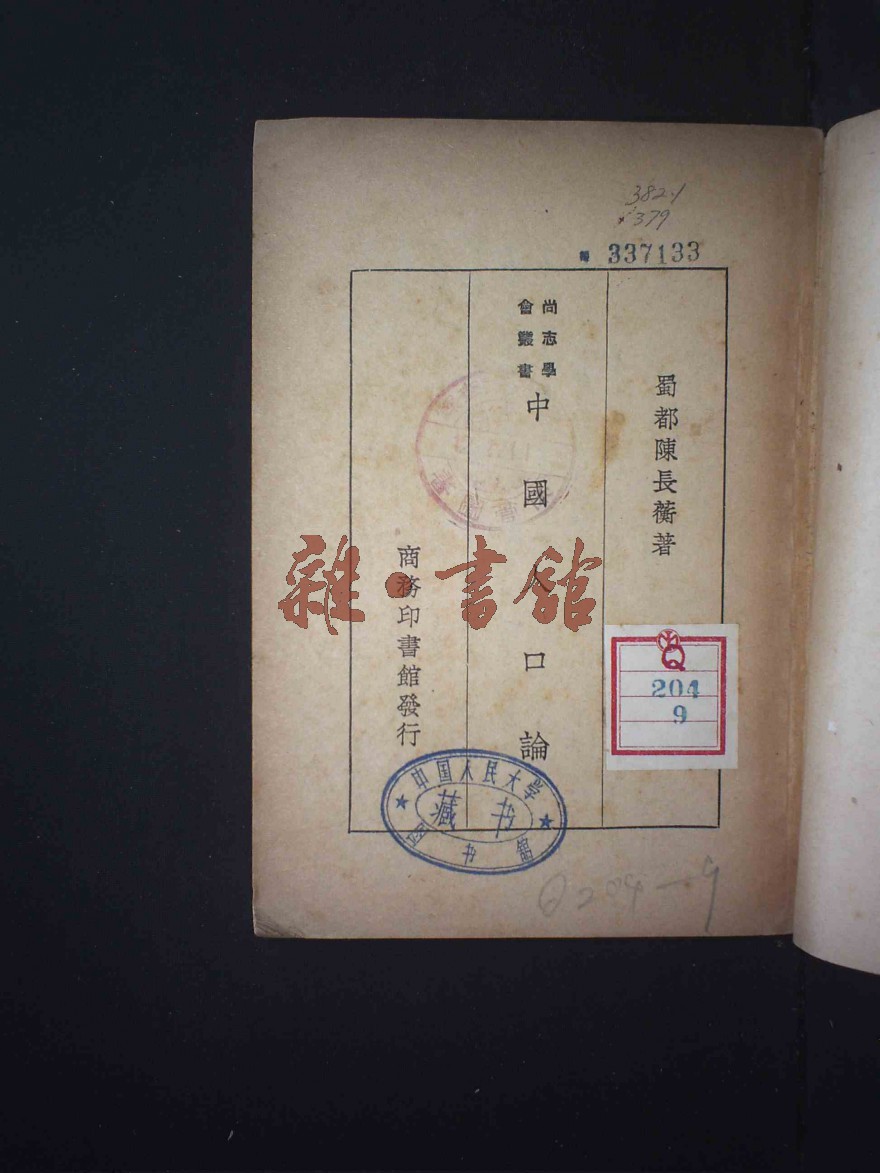 3824
379
337133
蜀都陳長蘅著
尚志學
會叢書
中國人口論
商務印書館發行
雜·書館
Q
204
9
中国人民大学
藏书
图书馆
Q204-9